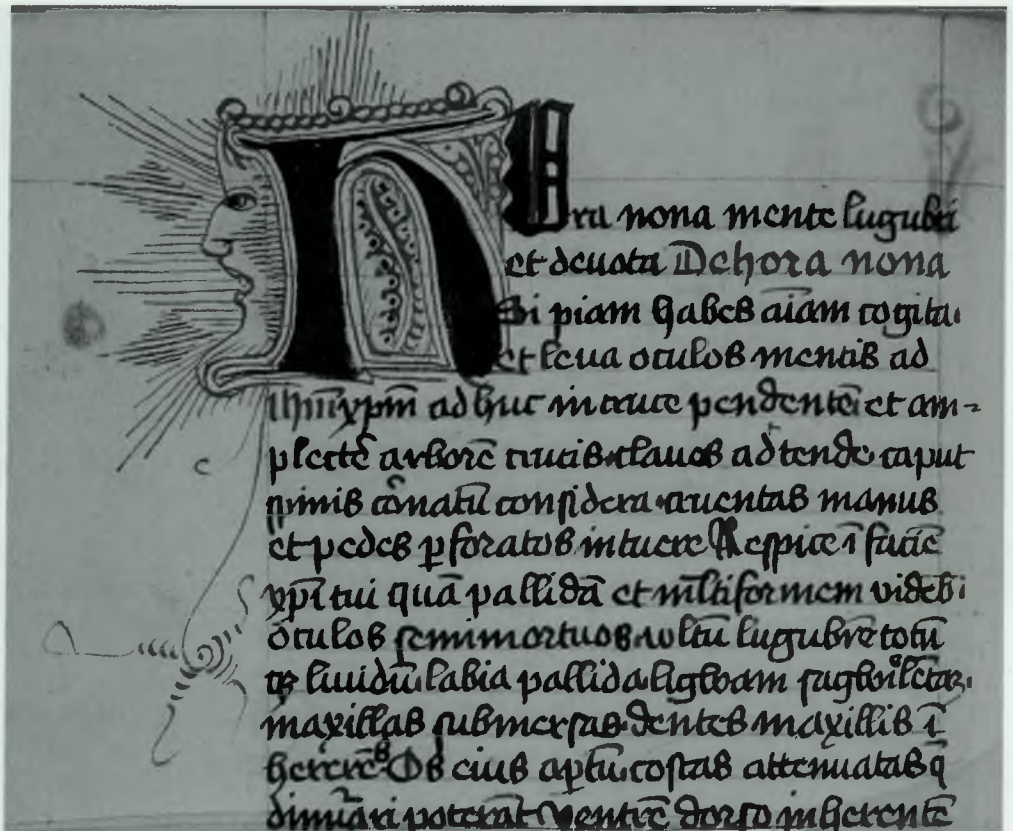 HOra nona mente lugubri
et deuota De hora nona
Si piam habes aīam cogita·
et leua oculos mentis ad
ihm̄ xpm̄ adhuc in cruce pendentē et am-
plectē arborē crucis·clauos adtende·caput
nimis
considera·cruentas manus
et pedes ꝑforatos intuere Respice ī faciē
xpī tui quā pallidā et
videb·
oculos semimortuos·vultū lugubrē totū
liuidū·labia pallida
maxillas submersas·dentes maxillis ī
Os eius aꝑtū·costas attenuatas q̄
poterāt Ventrē dorso inherentē